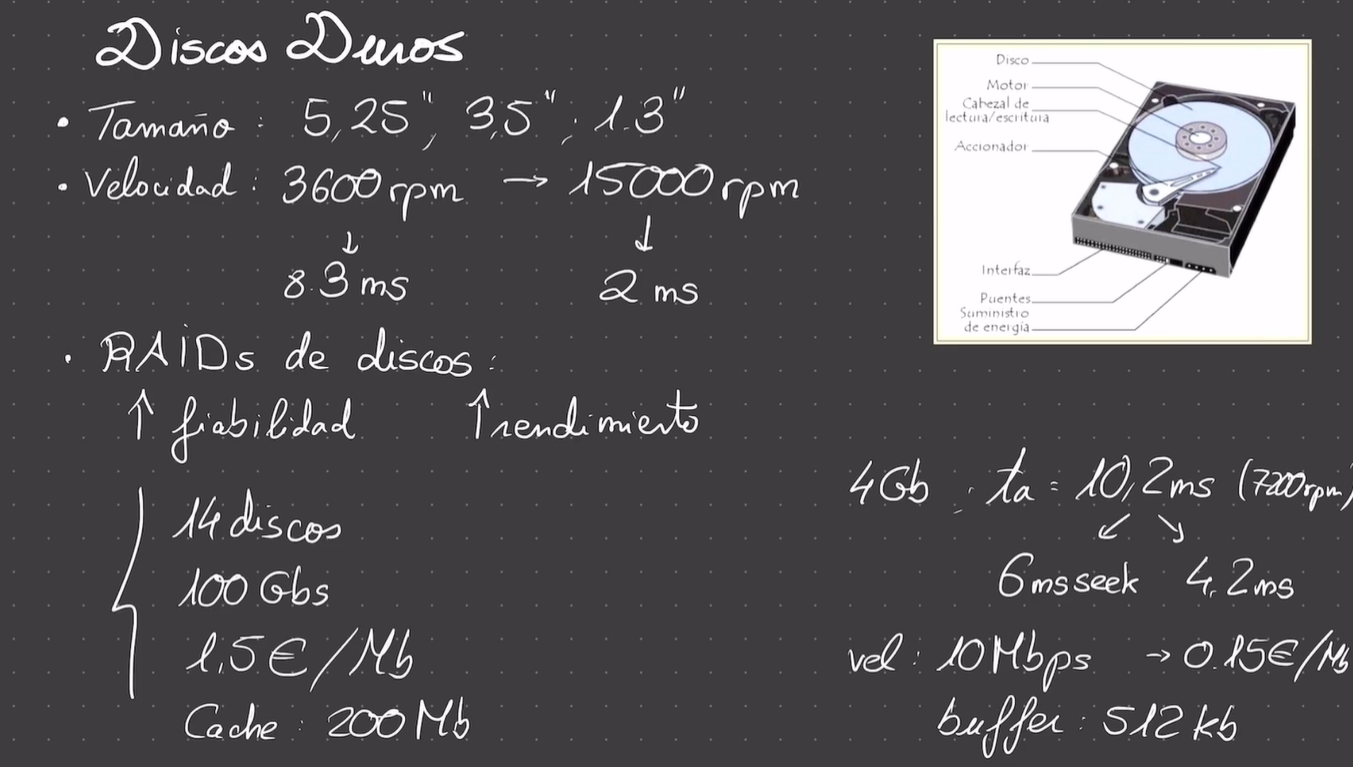 Discos Duros
• Tamaño : 5,25", 3,5" ; 1.3"
• Velocidad : 3600 rpm → 15000 rpm
↓ ↓
8.3 ms 2 ms
• RAIDs de discos :
↑ fiabilidad ↑ rendimiento
14 discos
100 Gbs
1,5€/Mb
Cache : 200 Mb
Disco
Motor
Cabezal de
lectura/escritura
Accionador
Interfaz
Puentes
Suministro
de energía
4Gb ; ta = 10,2ms (7200rpm)
↙ ↘
6ms seek 4.2ms
vel : 10Mbps → 0.15€/Mb
buffer : 512 kb